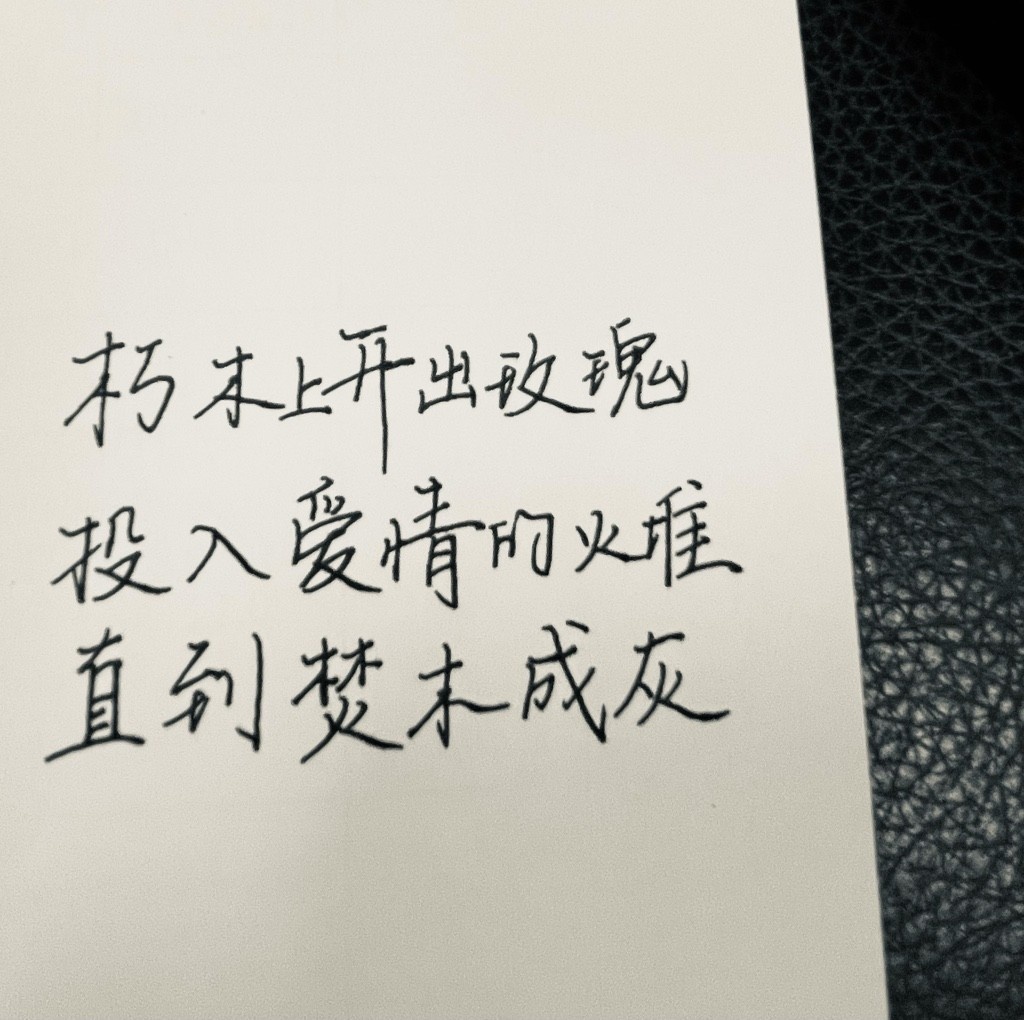 朽木上开出玫瑰
投入爱情的火堆
直到焚木成灰